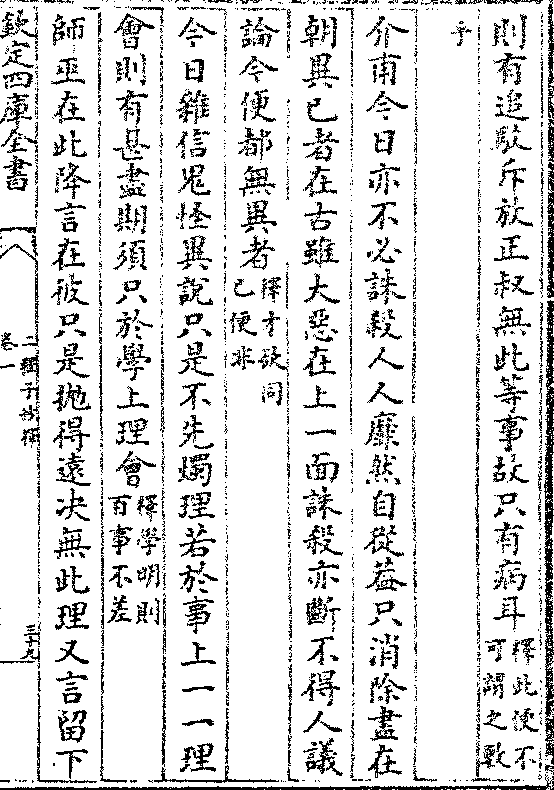 則有追駮斥放正叔無此等事故只有病耳釋此便不可謂之歉
予
介甫今日亦不必誅殺人人靡然自從蓋只消除盡在
朝異已者在古雖大惡在上一面誅殺亦斷不得人議
論今便都無異者釋才欲同已便非
今日雜信鬼怪異說只是不先燭理若於事上一一理
會則有甚盡期須只於學上理會釋學明則百事不差
師巫在此降言在彼只是抛得遠决無此理又言留下
欽定四庫全書
卷一
二程子抄釋
三十九